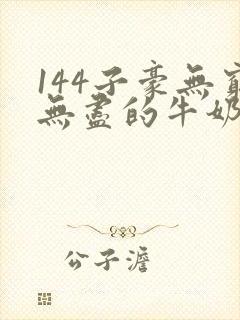 144子豪無窮
無盡的牛奶
公子澹